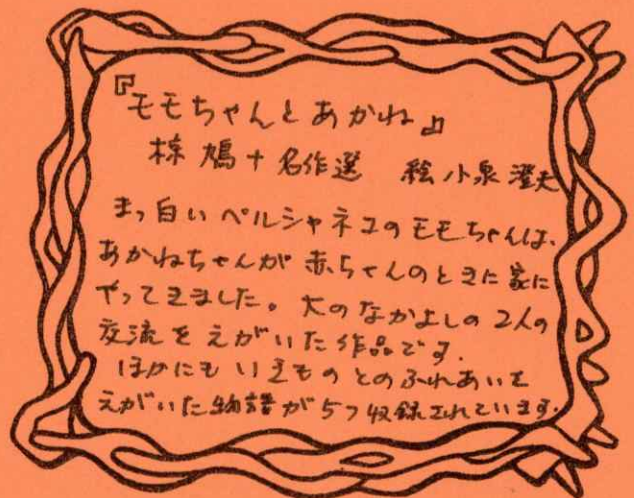 『モモちゃんとあかね』
椋鳩十名作選 絵 小泉澄夫
まっ白いペルシャネコのモモちゃんは、
あかねちゃんが赤ちゃんのときに家に
やってきました。大のなかよしの2人の
交流をえがいた作品です。
ほかにもいきものとのふれあいを
えがいた物語が5つ収録されています。